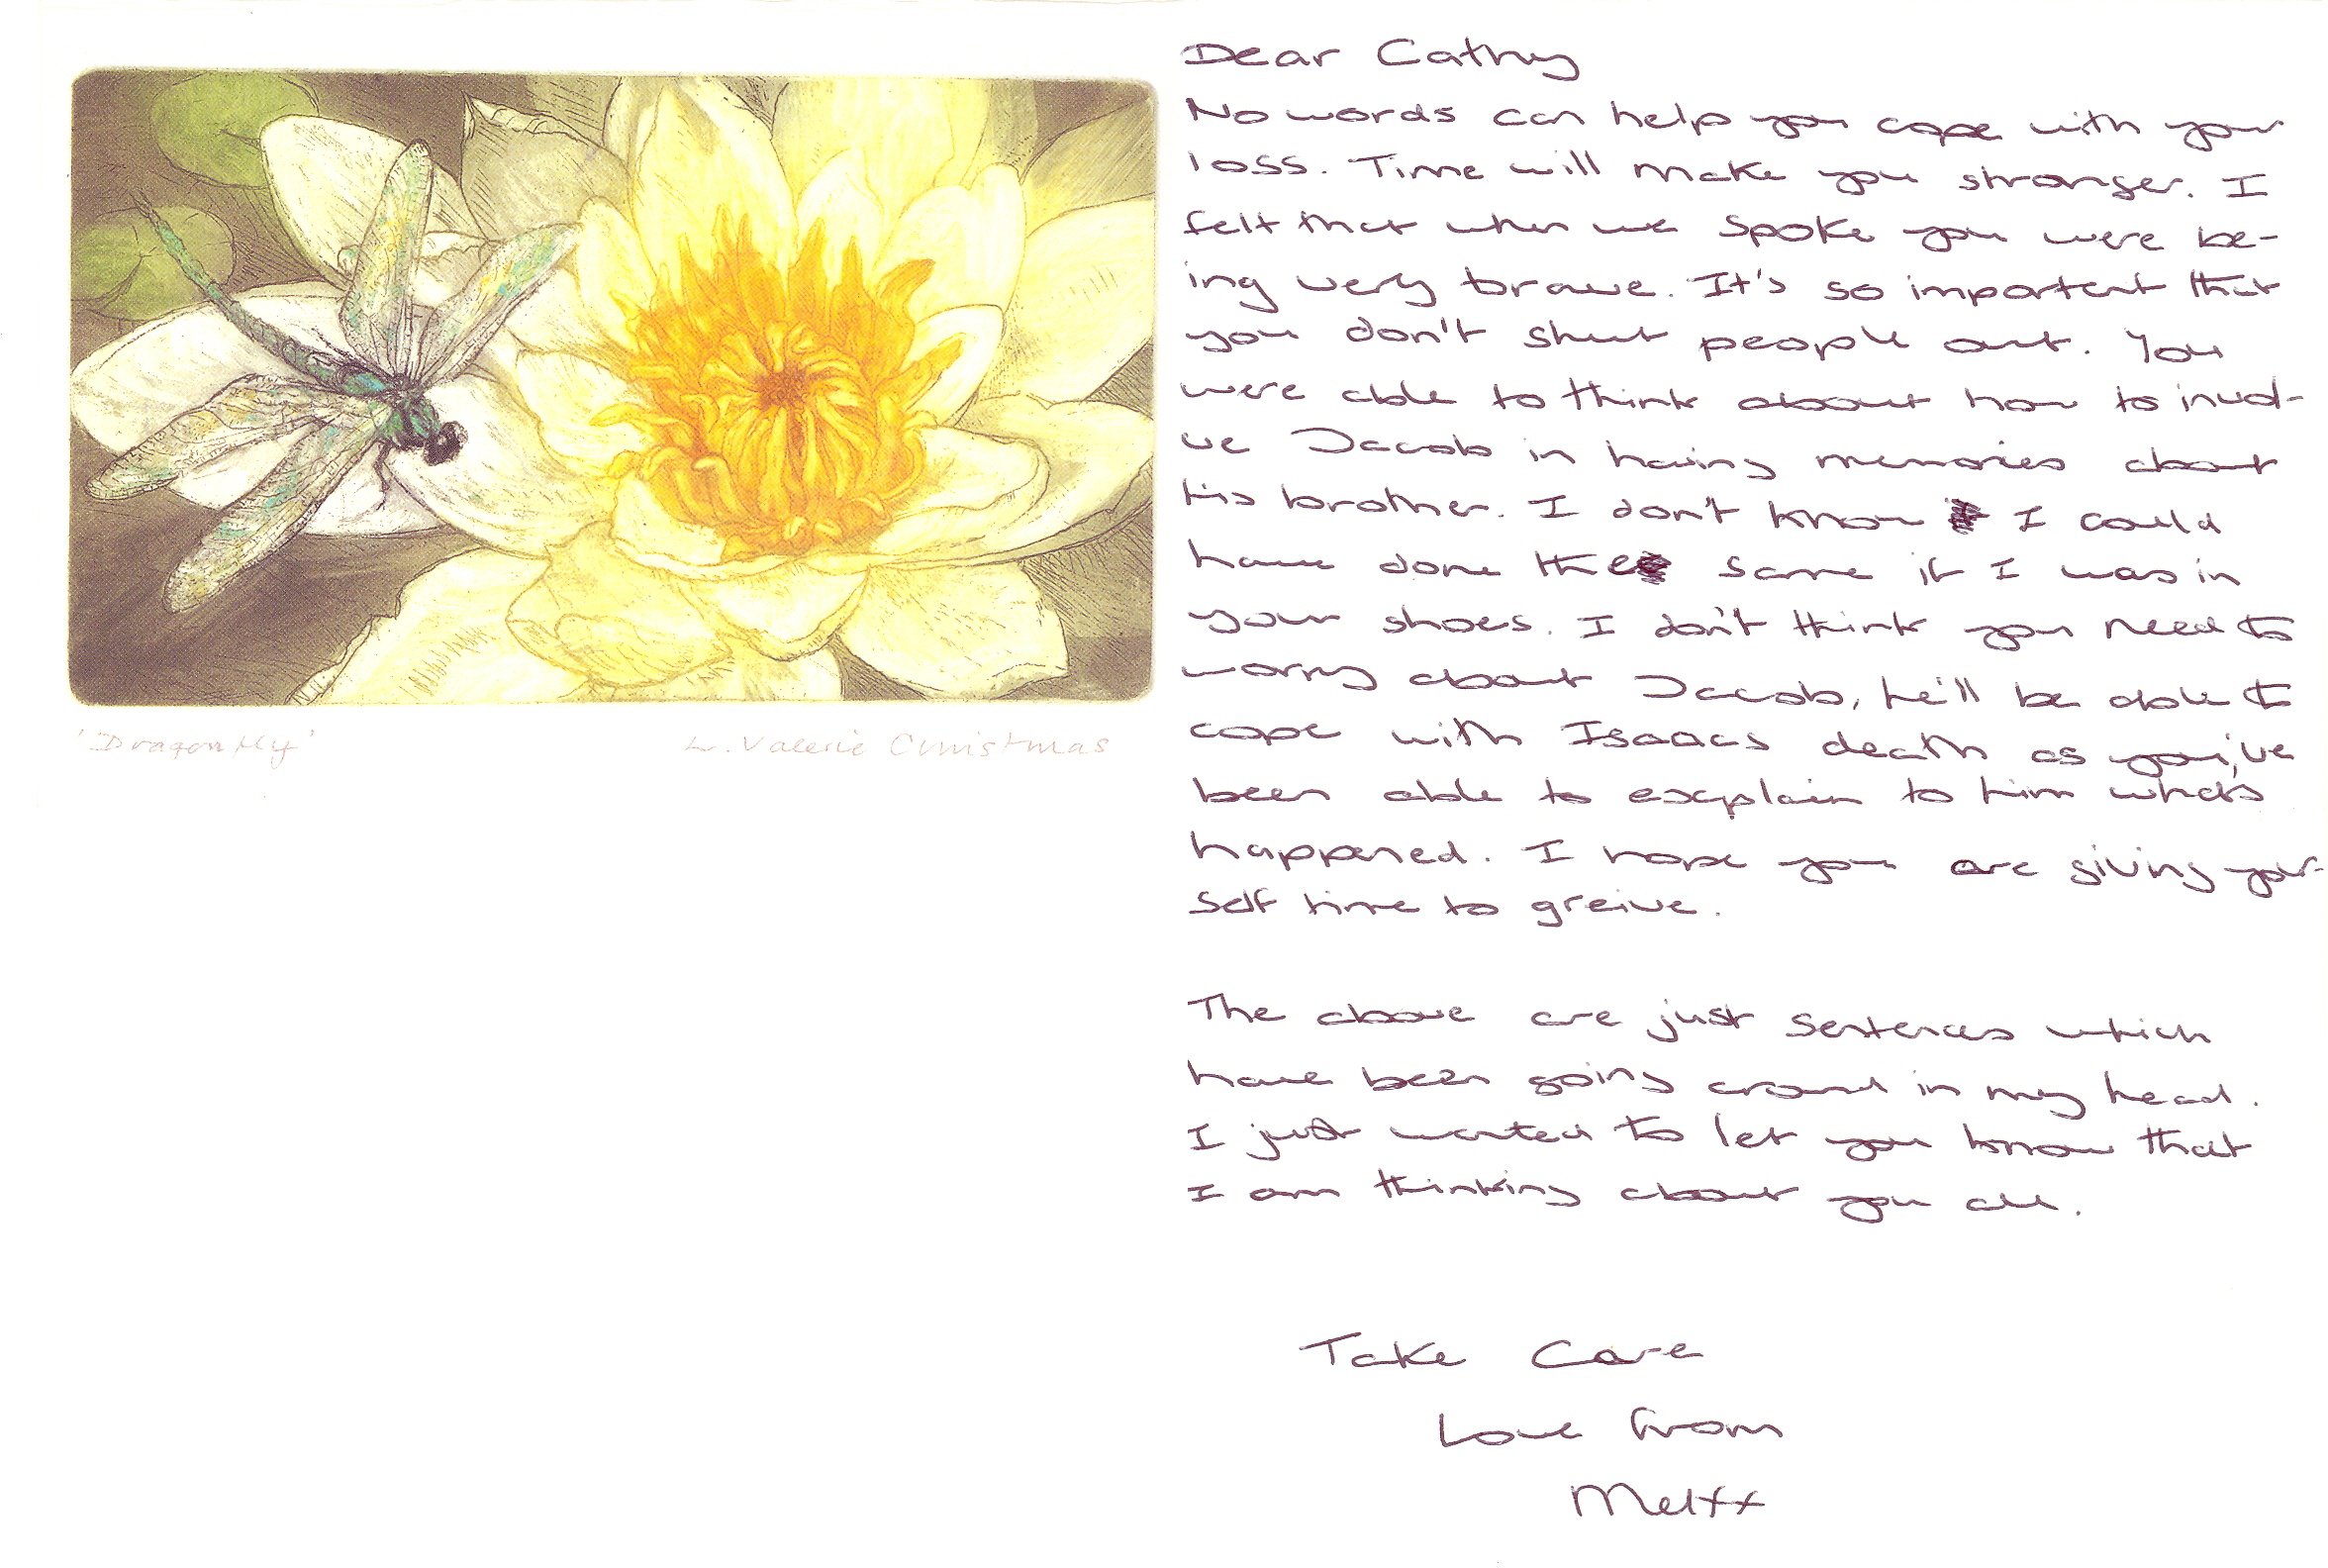 'Dragon fly'
L. Valerie Christmas
Dear Cathy
No words can help you cope with your
loss. Time will make you stronger. I
felt that when we spoke you were be-
ing very brave. It's so important that
you don't shut people out. You
were able to think about how to invol-
ve Jacob in having memories about
his brother. I don't know I could
have done the same if I was in
your shoes. I don't think you need to
worry about Jacob, he'll be able to
cope with Isaacs death as you've
been able to explain to him what's
happened. I hope you are giving your-
self time to greive.
The above are just sentences which
have been going around in my head.
I just wanted to let you know that
I am thinking about you all.
Take Care
Love from
Melxx